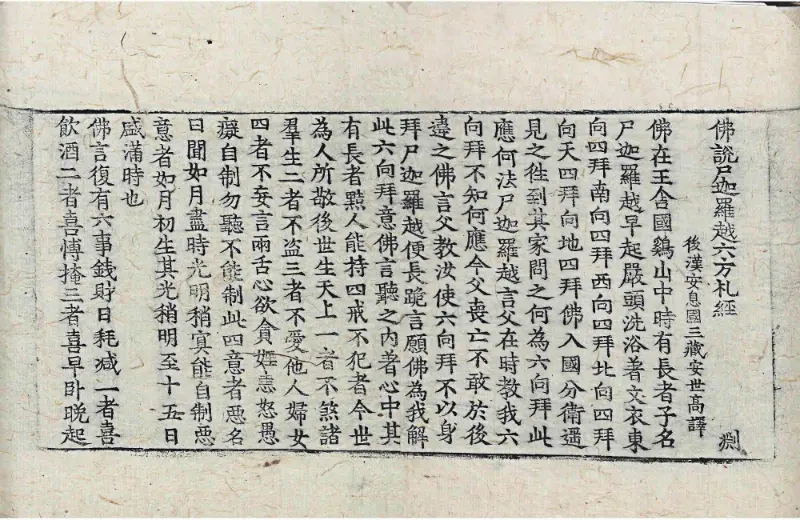 佛說尸迦羅越六方礼經
後漢安息國三藏安世高譯
渊
佛在王舍國鷄山中時有長者子名
尸迦羅越早起嚴頭洗浴著文衣東
向四拜南向四拜西向四拜北向四拜
向天四拜向地四拜佛入國分衛遥
見之徃到其家問之何為六向拜此
應何法尸迦羅越言父在時教我六
向拜不知何應今父喪亡不敢於後
違之佛言父教汝使六向拜不以身
拜尸迦羅越便長跪言願佛為我解
此六向拜意佛言聽之内著心中其
有長者黠人能持四戒不犯者今世
為人所敬後世生天上一者不煞諸
羣生二者不盗三者不愛他人婦女
四者不妄言兩舌心欲貪婬恚怒愚
癡自制勿聽不能制此四意者惡名
日聞如月盡時光明稍冥能自制惡
意者如月初生其光稍明至十五日
盛滿時也
佛言復有六事錢財日耗减一者喜
飲酒二者喜愽掩三者喜早卧晚起